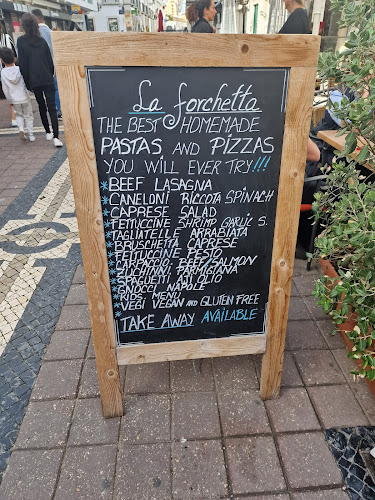 La forchetta
THE BEST HOMEMADE
PASTAS AND PIZZAS
YOU WILL EVER TRY!!!
*BEEF LASAGNA
*CANELONI RICCOTA SPINACH
*CAPRESE SALAD
*FETTUCINE SHRIMP GARLIC S.
*TAGLIATELLE ARRABIATA
*BRUSCHETTA CAPRESE
*FETTUCINE PESTO
*CARPACCIO BEEF/SALMON
*ZUCHINNI PARMIGIANA
*SPAGUETTI AGLIO
*GNOCCI NAPOLE
*KIDS MENU
*VEGI VEGAN AND GLUTEN FREE
*TAKE AWAY AVAILABLE